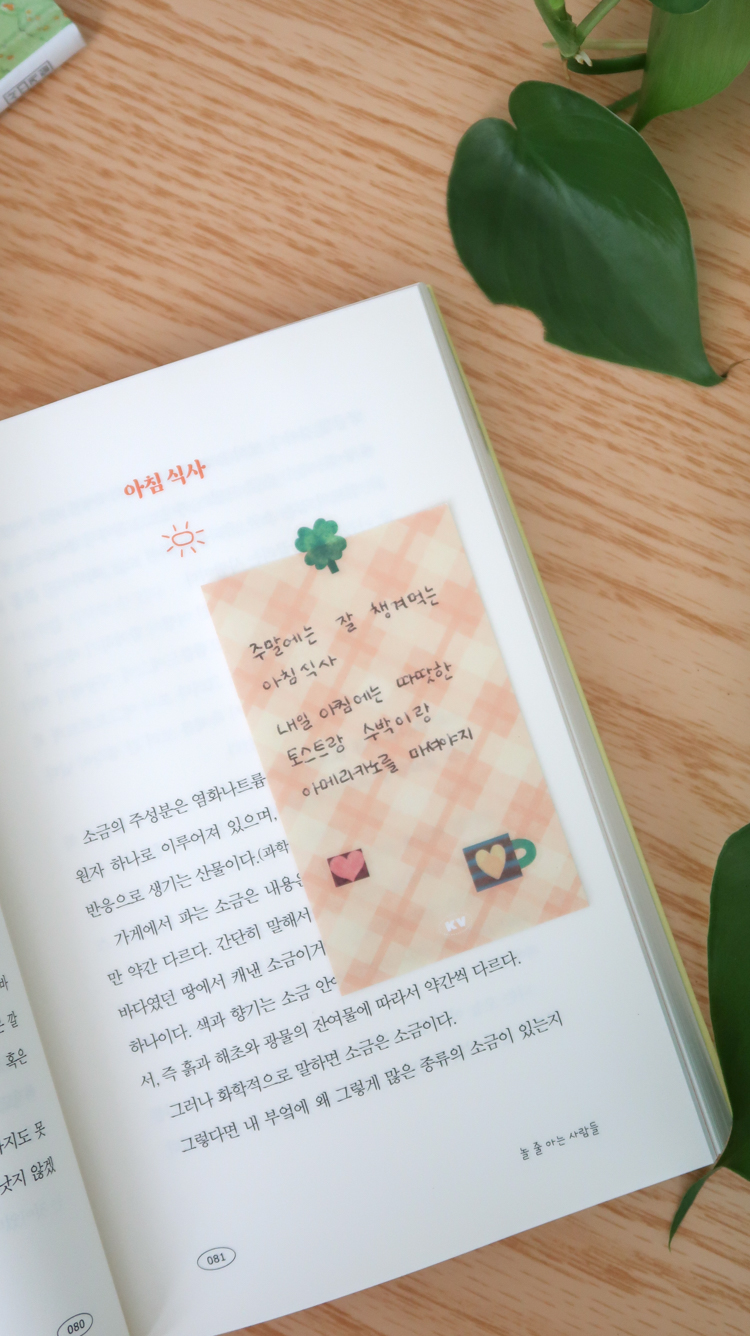 아침 식사
주말에는 잘 챙겨먹는
아침 식사
내일 아침에는 따땃한
토스트랑 수박이랑
아메리카노를 마셔야지
KV
소금의 주성분은 염화나트륨
원자 하나로 이루어져 있으며,
반응으로 생기는 산물이다.(과학
가게에서 파는 소금은 내용은
만 약간 다르다. 간단히 말해서
바다였던 땅에서 캐낸 소금이거
하나이다. 색과 향기는 소금 안
서, 즉 흙과 해초와 광물의 잔여물에 따라서 약간씩 다르다.
그러나 화학적으로 말하면 소금은 소금이다.
그렇다면 내 부엌에 왜 그렇게 많은 종류의 소금이 있는지
놀 줄 아는 사람들
081
깔
혹은
지도 못
낫지 않겠
080